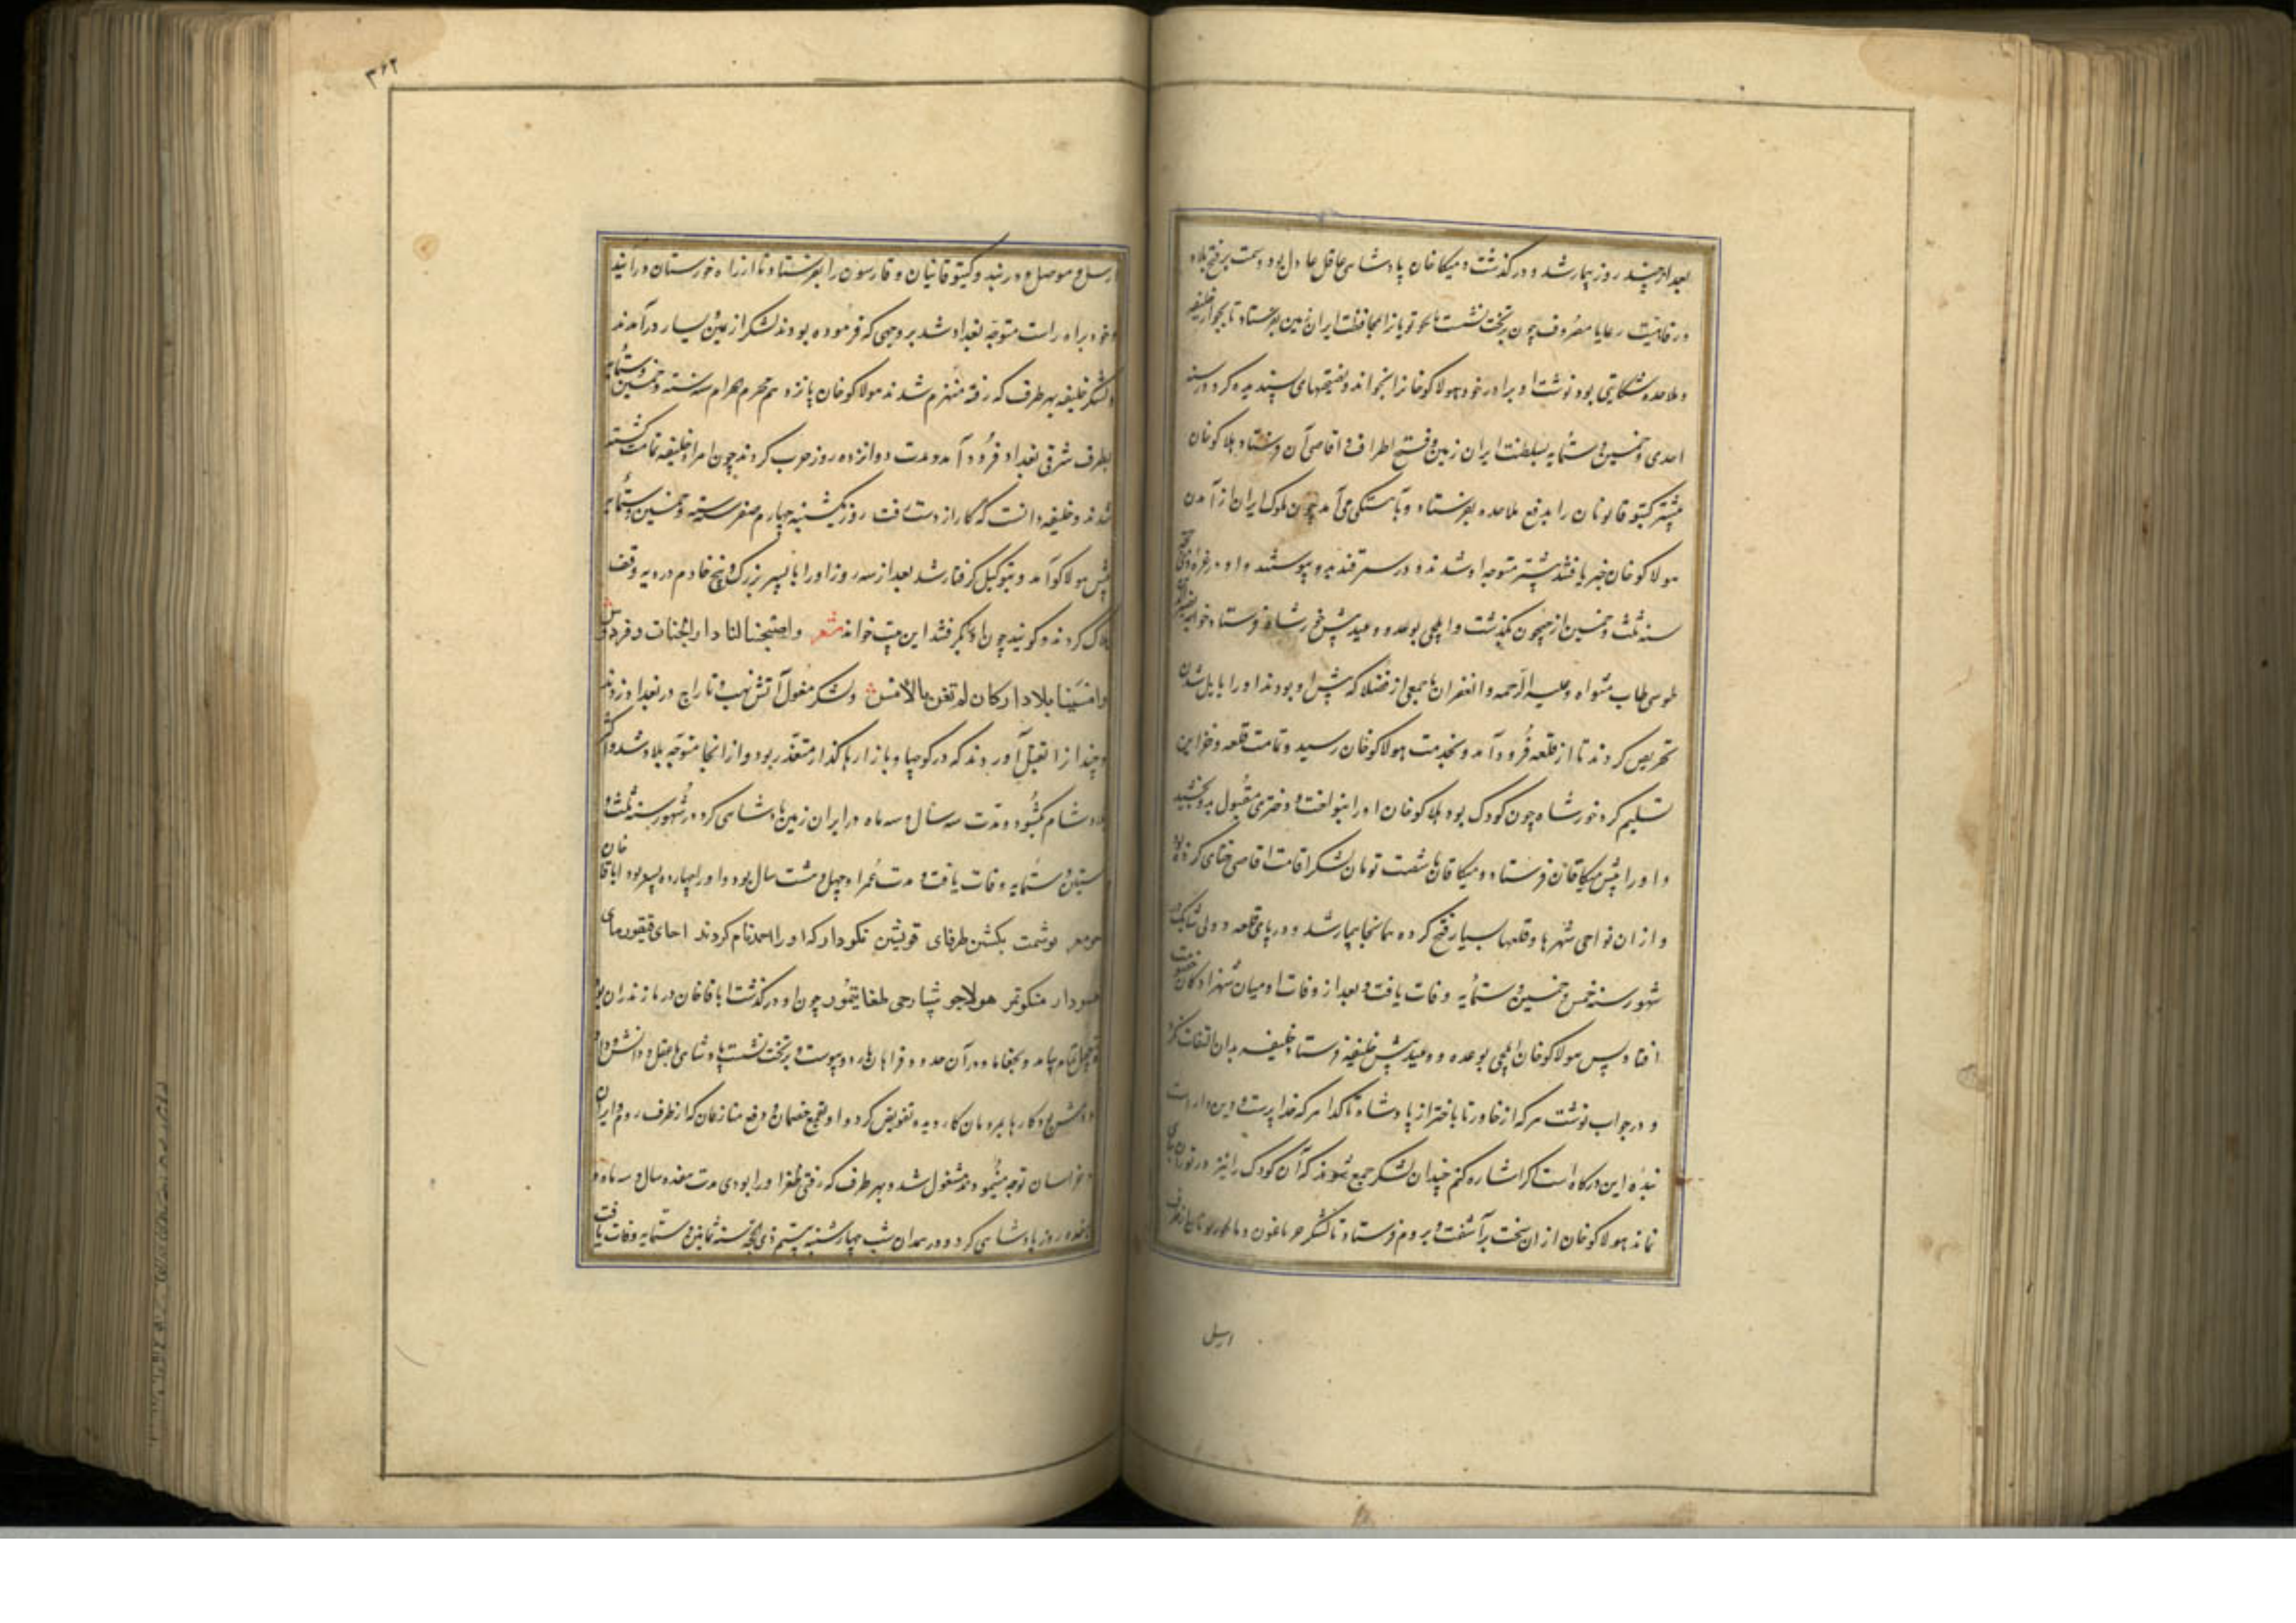 بعد از چند روز بیمار شد و درگذشت و میکاخان پادشاهی عاقل عادل بود و همت بر فتح بلاد
در فاهیت رعایا مصروف چون بر تخت نشست بایجو نویان را بمحافظت ایران زمین بفرستاد تا بجوار خلیفه
و ملاحده شکایتی بود نوشت او برادر خود هولاکو خانرا بخواند و نصیحتهای پسندیده کرد و در سنه
احدی و خمسین و ستمایه بسلطنت ایران زمین و فتح اطراف و اقاصی آن فرستاد هلاکو خان
پیشتر کیتوقانویان را بدفع ملاحده بفرستاد و بآهستگی می آمد چون ملوک ایران از آمدن
هولاکو خان خبر یافتند پیشتر متوجه او شدند و در سمرقند بدو پیوستند و او در غره ذی الحجه
سنه ثلث و خمسین از جیحون بگذشت و ایلچی بوعده و وعید پیش خورشاه فرستاد خواجه نصیر الدین
طوسی طاب مثواه و علیه الرحمه و الغفران با جمعی از فضلا که پیش او بودند او را بایل شدن
تحریص کردند تا از قلعه فرود آمد و بخدمت هولاکو خان رسید و تمامت قلعه و خزاین
تسلیم کرد خورشاه چون کودک بود هلاکو خان او را بنواخت و دختری مغول بدو بخشید
و او را پیش میکاقاآن فرستاد و میکا قاآن با شصت تومان لشکر اقامت اقاصی ختای کرده بود
و از ان نواحی شهرها و قلعهاء بسیار فتح کرده همانجا بیمار شد و در پای قلعه دولی شانک در
شهور سنه خمس و خمسین و ستمایه وفات یافت و بعد از وفات او میان شهزادگان خصومت
افتاد پس هولاکو خان ایلچی بوعده و وعید پیش خلیفه فرستاد خلیفه بدان التفات نکرد
و در جواب نوشت هر که از خاور تا باختر از پادشاه تا گدا هر که خدا پرست و دین دار است
بنده این درگاه است اگر اشاره کنم چندان لشکر جمع شوند که آن کودک را نیز در توران جای
نماند هولاکو خان از ان سخت برآشفت و بروم فرستاد تا لشکر جرماغون و بایجو نویان از طرف
اربیل
۳۶۲
اربیل و موصل در رسید و کیتوقانیان و قارسون را بفرستاد تا از راه خورستان درآیند
و خود براه راست متوجه بغداد شد بر وجهی که فرموده بودند لشکر از یمین و یسار درآمدند
و لشکر خلیفه بهر طرف که رفته منهزم شدند هولاکو خان پانزدهم محرم الحرام سنه سته و خمسین و ستمایه
بطرف شرقی بغداد فرود آمد و مدت دوازده روز حرب کردند چون امراء خلیفه تمامت کشته
شدند و خلیفه دانست که کار از دست رفت روز یکشنبه چهارم صفر سنه سته و خمسین و ستمایه
پیش هولاکو آمد و بتوکیل گرفتار شد بعد از سه روز او را با پسر بزرگ و پنج خادم در دیه وقف
هلاک کردند و گویند چون او را گرفتند این بیت خواند شعر و اصبحنا لنا دار کجنات و فردوس
و امسینا بلا دار کان لم تغن بالامس و لشکر مغول آتش نهب و تاراج در بغداد زدند
و چندان را بقتل آوردند که در کوچها و بازارها گذار متعذر بود و از انجا متوجه بلاد شد و اکثر
بلاد شام بگشود و مدت سه سال و سه ماه در ایران زمین پادشاهی کرد در شهور سنه ثلث و
ستین و ستمایه وفات یافت و مدت عمر او چهل و هشت سال بود و او را چهارده پسر بود اباقا خان
یوشمت بکشین طرقای قونیتن نکودار که او را احمد نام کردند اجای قیقورمای
منکوتمر هولاجو شبادجی طغایتیمور چون او درگذشت اباقا خان در مازندران بود
بتعجیل تمام بیامد و بجغاتا و در آن حدود فراهان بارد و پیوست و بر تخت نشست پادشاهی با عقل و دانش و داد
و کارها بمردمان کار دیده تفویض کرد و او بقمع خصمان و دفع منازعان که از طرف روم و ایران
و خراسان توجه مینمودند مشغول شد و بهر طرف که رفتی ظفر او را بودی مدت هفده سال و سه ماه و
هفده روز پادشاهی کرد و در همدان شب چهارشنبه بیستم ذی الحجه سنه ثمانین و ستمایه وفات یافت